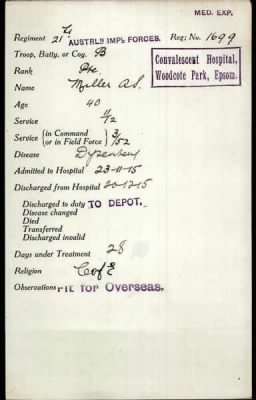 MED. EXP.
Regiment 21 AUSTRLN IMPL FORCES. Reg: No. 1699
Troop, Batty. or Coy. B
Rank Pte.
Convalescent Hospital,
Woodcote Park, Epsom.
Name Miller A.S.
Age 40
Service 1/12
Service { in Command or in Field Force } 3/52
Disease Dysentery
Admitted to Hospital 23-11-15
Discharged from Hospital 20-12-15
Discharged to duty TO DEPOT.
Disease changed
Died
Transferred
Discharged invalid
Days under Treatment 28
Religion C of E
Observations FIT for Overseas.